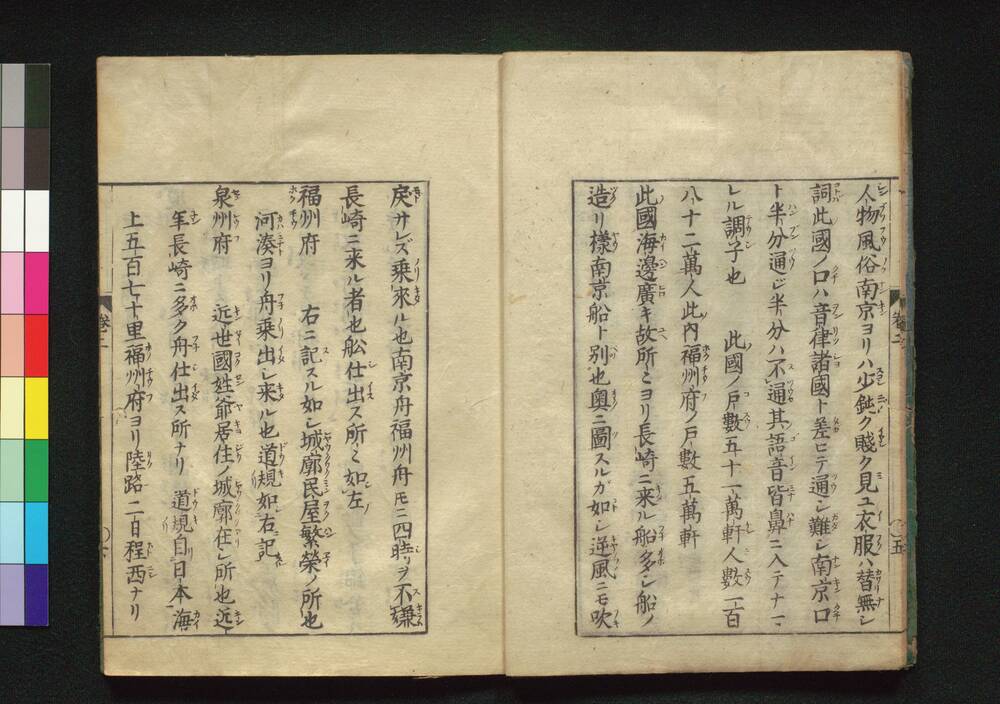 人物風俗南京ヨリハ少鈍ク賤ク見ユ衣服ハ替無シ
詞此國ノ口ハ音律諸國ト差ヒテ通シ難シ南京口
ト半分通ジ半分ハ不通其語音皆鼻ニ入テナマ
レル調子也　此國ノ戸數五十一萬軒人數一百
八十二萬人此内福州府ノ戸數五萬軒
此國海邊廣キ故所〻ヨリ長崎ニ来ル船多シ船ノ
造リ様南京船ト別也奥ニ圖スルガ如シ逆風ニモ吹
卷二
五
戻サレズ乗來ル也南京舟福州舟モニ四時ヲ不嫌
長崎ニ来ル者也舩仕出ス所〻如左
福州府　右ニ記スル如シ城廓民屋繁榮ノ所也
河湊ヨリ舟乗出シ来ル也道規如右記
泉州府　近世國姓爺居住ノ城廓在シ所也近
年長崎ニ多ク舟仕出ス所ナリ　道規自日本海
上五百七十里福州府ヨリ陸路二日程西ナリ
卷二